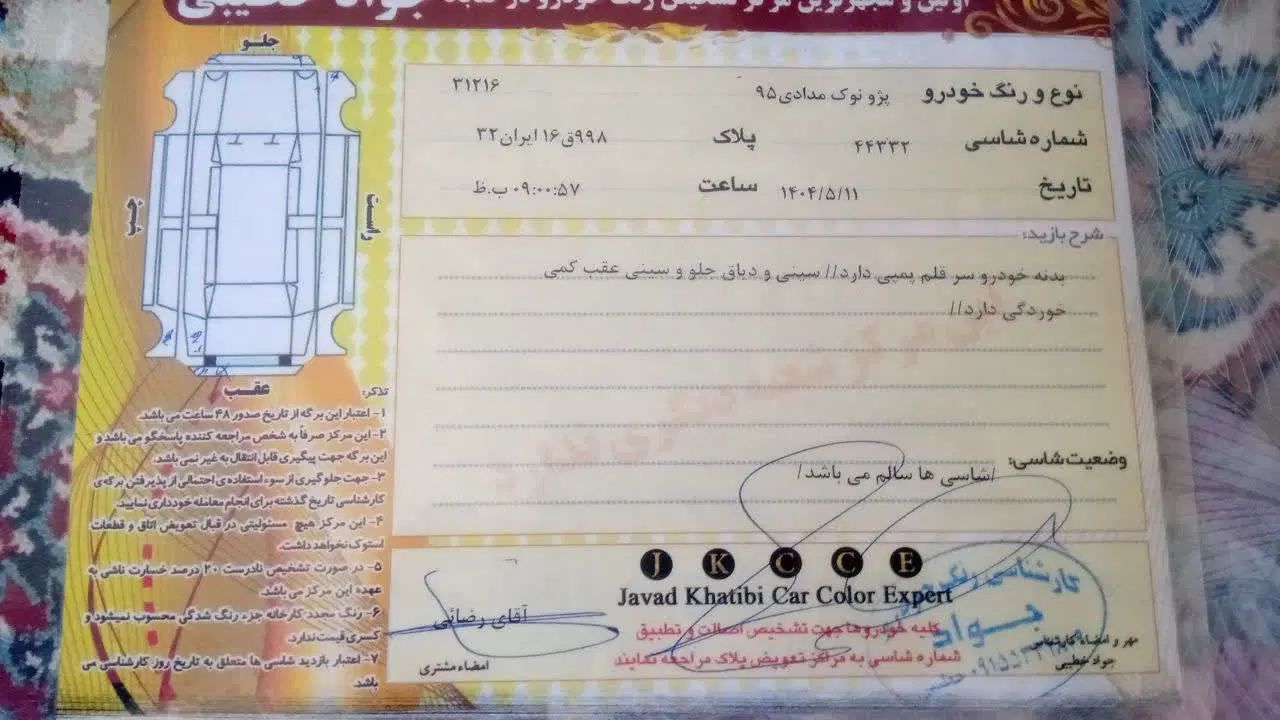 اولین و مجهزترین مرکز تشخیص رنگ خودرو در
جواد خطیبی
جلو
چپ
راست
عقب
نوع و رنگ خودرو پژو نوک مدادی۹۵ ۳۱۲۱۶
شماره شاسی ۴۴۳۳۲ پلاک ۹۹۸ق۱۶ ایران۳۲
تاریخ ۱۴۰۴/۵/۱۱ ساعت ۰۹:۰۰:۵۷ ب.ظ
شرح بازدید:
بدنه خودرو سر قلم پمپی دارد// سینی و دیاق جلو و سینی عقب کمی
خوردگی دارد//
وضعیت شاسی:
/شاسی ها سالم می باشد/
تذکر:
۱- اعتبار این برگه از تاریخ صدور ۴۸ ساعت می باشد.
۲- این مرکز صرفاً به شخص مراجعه کننده پاسخگو می باشد و
این برگه جهت پیگیری قابل انتقال به غیر نمی باشد.
۳- جهت جلوگیری از سوء استفاده ی احتمالی از پذیرفتن برگه ی
کارشناسی تاریخ گذشته برای انجام معامله خودداری نمایید.
۴- این مرکز هیچ مسئولیتی در قبال تعویض اتاق و قطعات
استوک نخواهد داشت.
۵- در صورت تشخیص نادرست ۲۰ درصد خسارت ناشی به
عهده این مرکز می باشد.
۶- رنگ مجدد کارخانه جزء رنگ شدگی محسوب نمیشود و
کسری قیمت ندارد.
۷- اعتبار بازدید شاسی ها متعلق به تاریخ روز کارشناسی می
باشد.
J K C C E
Javad Khatibi Car Color Expert
کلیه خودروها جهت تشخیص اصالت و تطبیق
شماره شاسی به مراکز تعویض پلاک مراجعه نمایند
آقای رضائی
امضاء مشتری
مهر و امضاء کارشناس
جواد خطیبی
کارشناسی رنگ
جواد